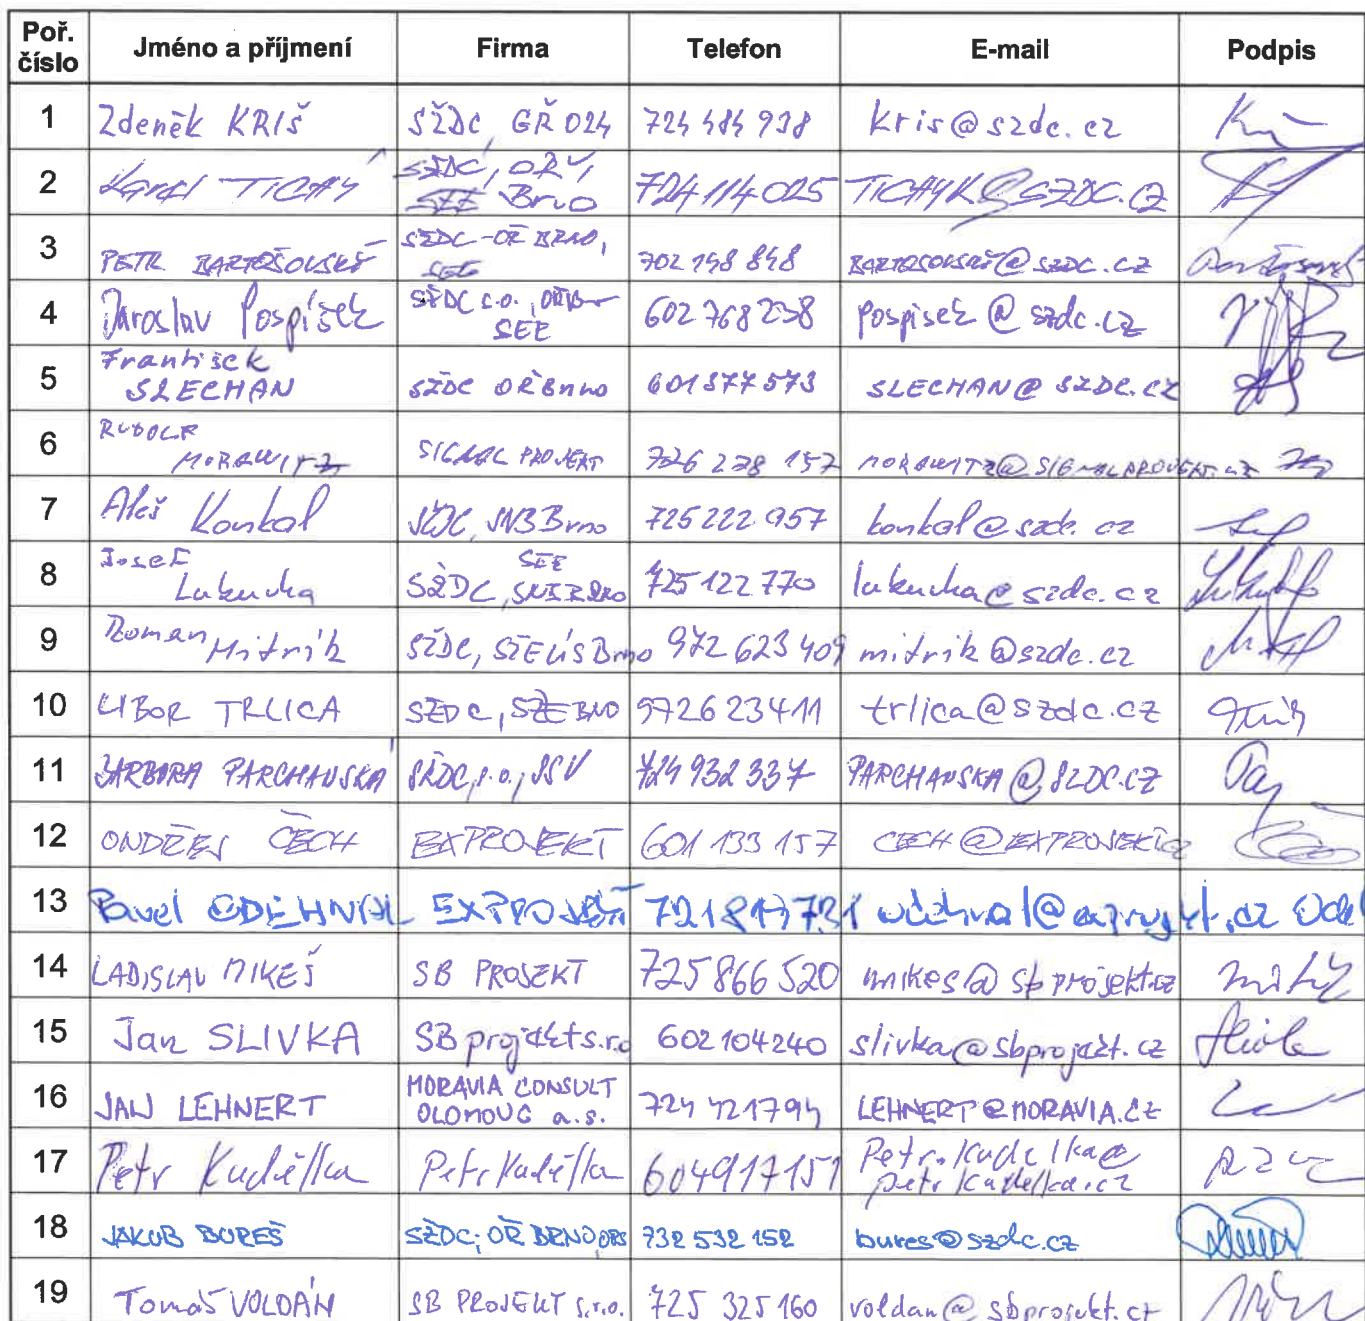 Poř. číslo Jméno a příjmení Firma Telefon E-mail Podpis
1 Zdeněk KRIŠ SŽDC, GŘ O24 724 484 938 kris@szdc.cz
2 Karel TICHÝ SŽDC, OŘ, SEE Brno 724 114 025 TICHYK@SZDC.CZ
3 PETR BARTOŠOVSKÝ SŽDC-OŘ BRNO, SEE 702 148 848 BARTOSOVSKY@szdc.cz
4 Jaroslav Pospíšek SŽDC s.o., SEE 602 768 238 pospisek@szdc.cz
5 František SLECHAN SŽDC OŘ Brno 601 377 573 SLECHAN@SZDC.CZ
6 RUDOLF MORAWITZ SIGNAL PROJEKT 726 228 157
7 Aleš Konkol Brno 725 222 957 konkol@szdc.cz
8 Josef Lukucha SŽDC, SEE 725 122 770 lukucha@szdc.cz
9 Roman Mitrik SŽDC, Brno 972 623 409 mitrik@szdc.cz
10 LIBOR TRLICA SŽDC, 972623411 trlica@szdc.cz
11 BARBORA PARCHANSKÁ SŽDC, s.o., SSV 724 932 337 PARCHANSKA@SZDC.CZ
12 ONDŘEJ ČECH EXPROJEKT 601 133 157 CECH@EXPROJEKT.cz
13 Pavel ODEHNAL EXPROJEKT
14 LADISLAV MIKEŠ SB PROJEKT 725 866 520 mikes@sbprojekt.cz
15 Jan SLIVKA SB projekt s.r.o 602 104240 slivka@sbprojekt.cz
16 JAN LEHNERT MORAVIA CONSULT OLOMOUC a.s. 724 421794 LEHNERT@MORAVIA.CZ
17 Petr Kudělka Petr Kudělka 604917151 Petr.Kudelka@petrkudelka.cz
18 JAKUB BUREŠ SŽDC; OŘ BRNO 732 532 152 bures@szdc.cz
19 Tomáš VOLDÁN SB PROJEKT s.r.o. 725 325 160 voldan@sbprojekt.cz